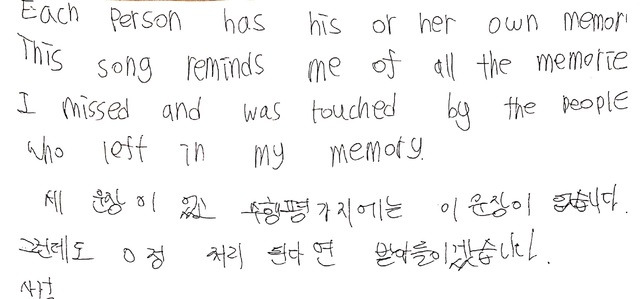 Each person has his or her own memori
This song reminds me of all the memorie
I missed and was touched by the people
who left in my memory.
세 문장이 있고 수행평가지에는 이 문장이 없습니다.
그런데도 0정 처리 된다면 받아들이겠습니다.